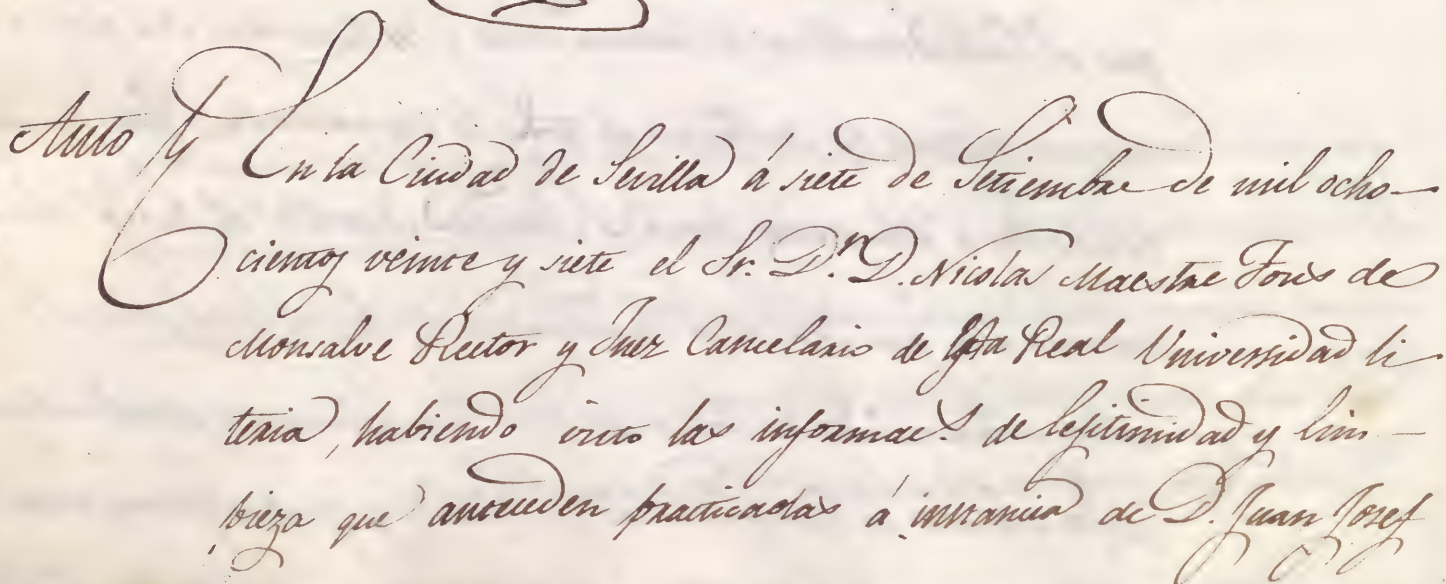 Auto En la Ciudad de Sevilla á siete de Setiembre de mil ocho-
cientos veinte y siete el Sr. Dn. D. Nicolas Maestre Tous de
Monsalve Rector y Juez Cancelario de esta Real Universidad li
teria, habiendo visto las informacs. de lejitimidad y lim-
pieza que anteceden practicadas á instancia de D. Juan Josef